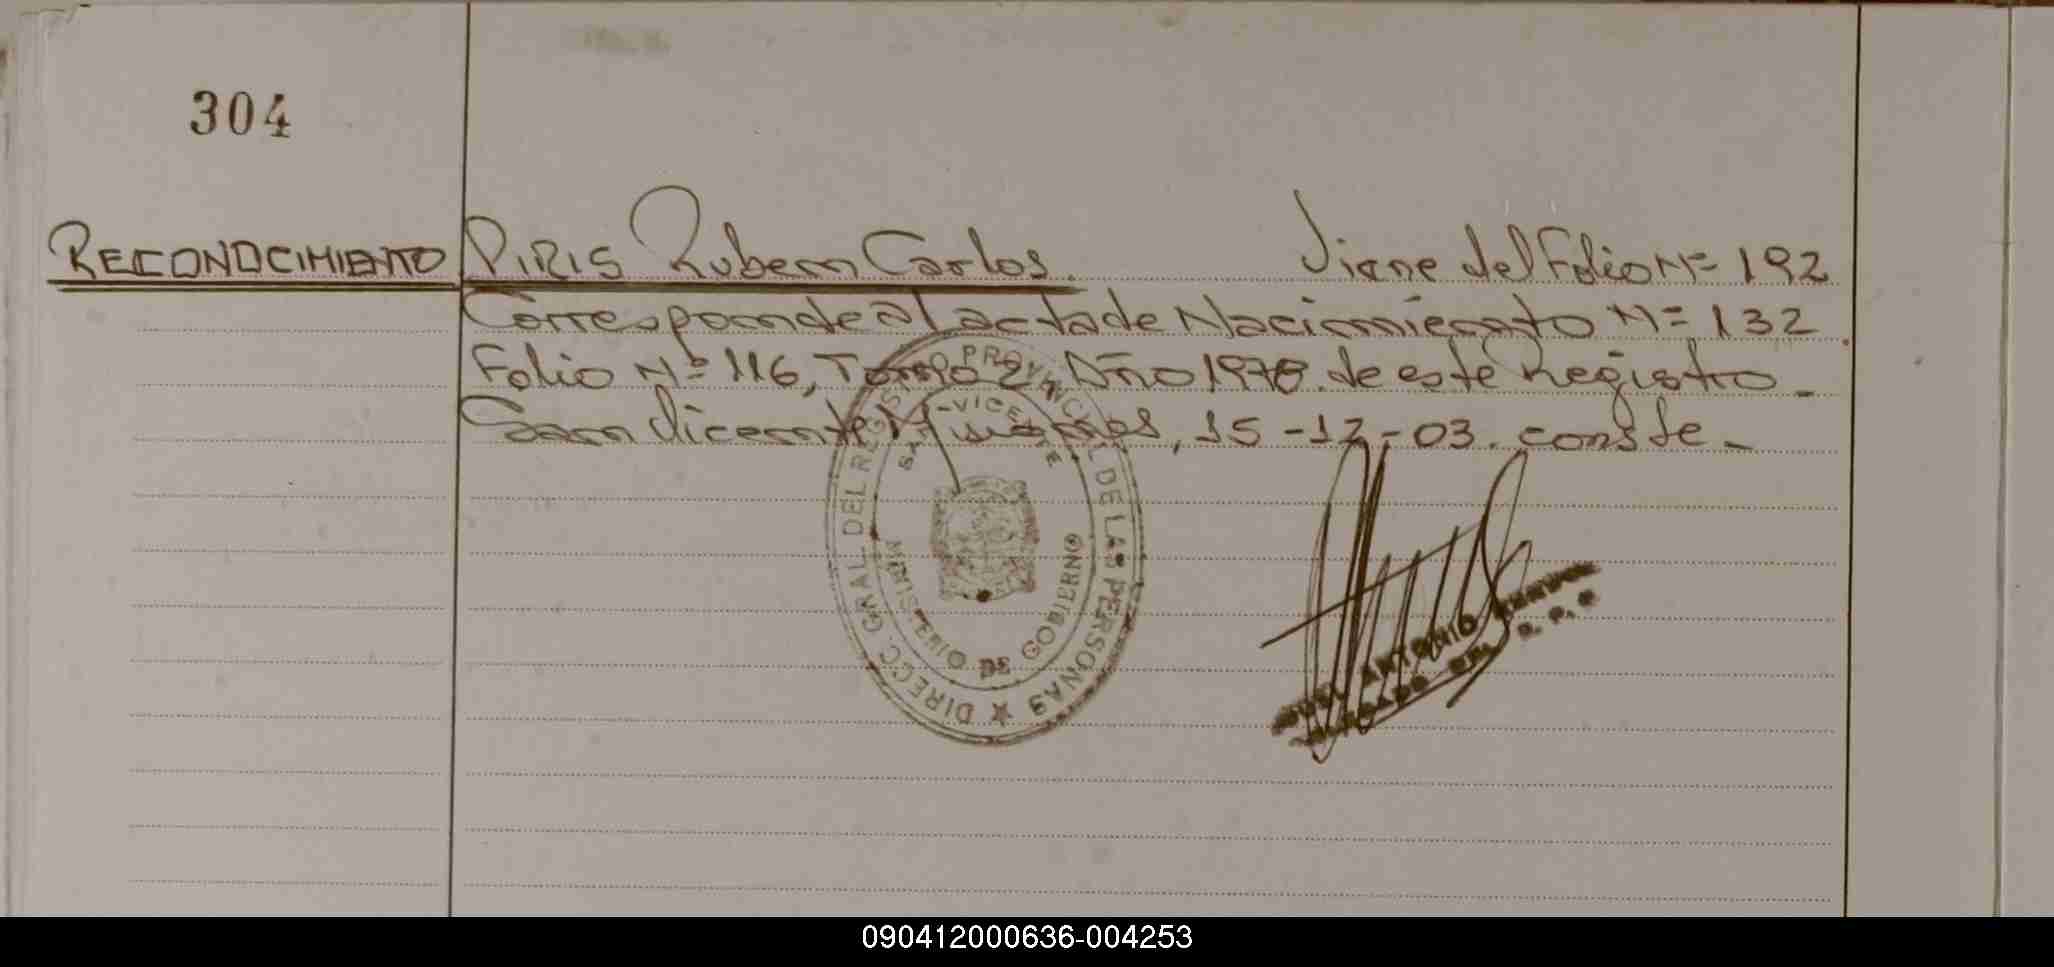 304
RECONOCIMIENTO PIRIS Ruben Carlos. Viene del Folio Nº 192
Corresponde al acta de Nacimiento Nº 132
Folio Nº 116, Tomo 2º Año 1978 de este Registro.
San Vicente Misiones, 15-12-03. conste.
DIRECC. GRAL. DEL REGISTRO PROVINCIAL DE LAS PERSONAS
SAN VICENTE
MINISTERIO DE GOBIERNO
ANTONIO
R. P. P
090412000636-004253